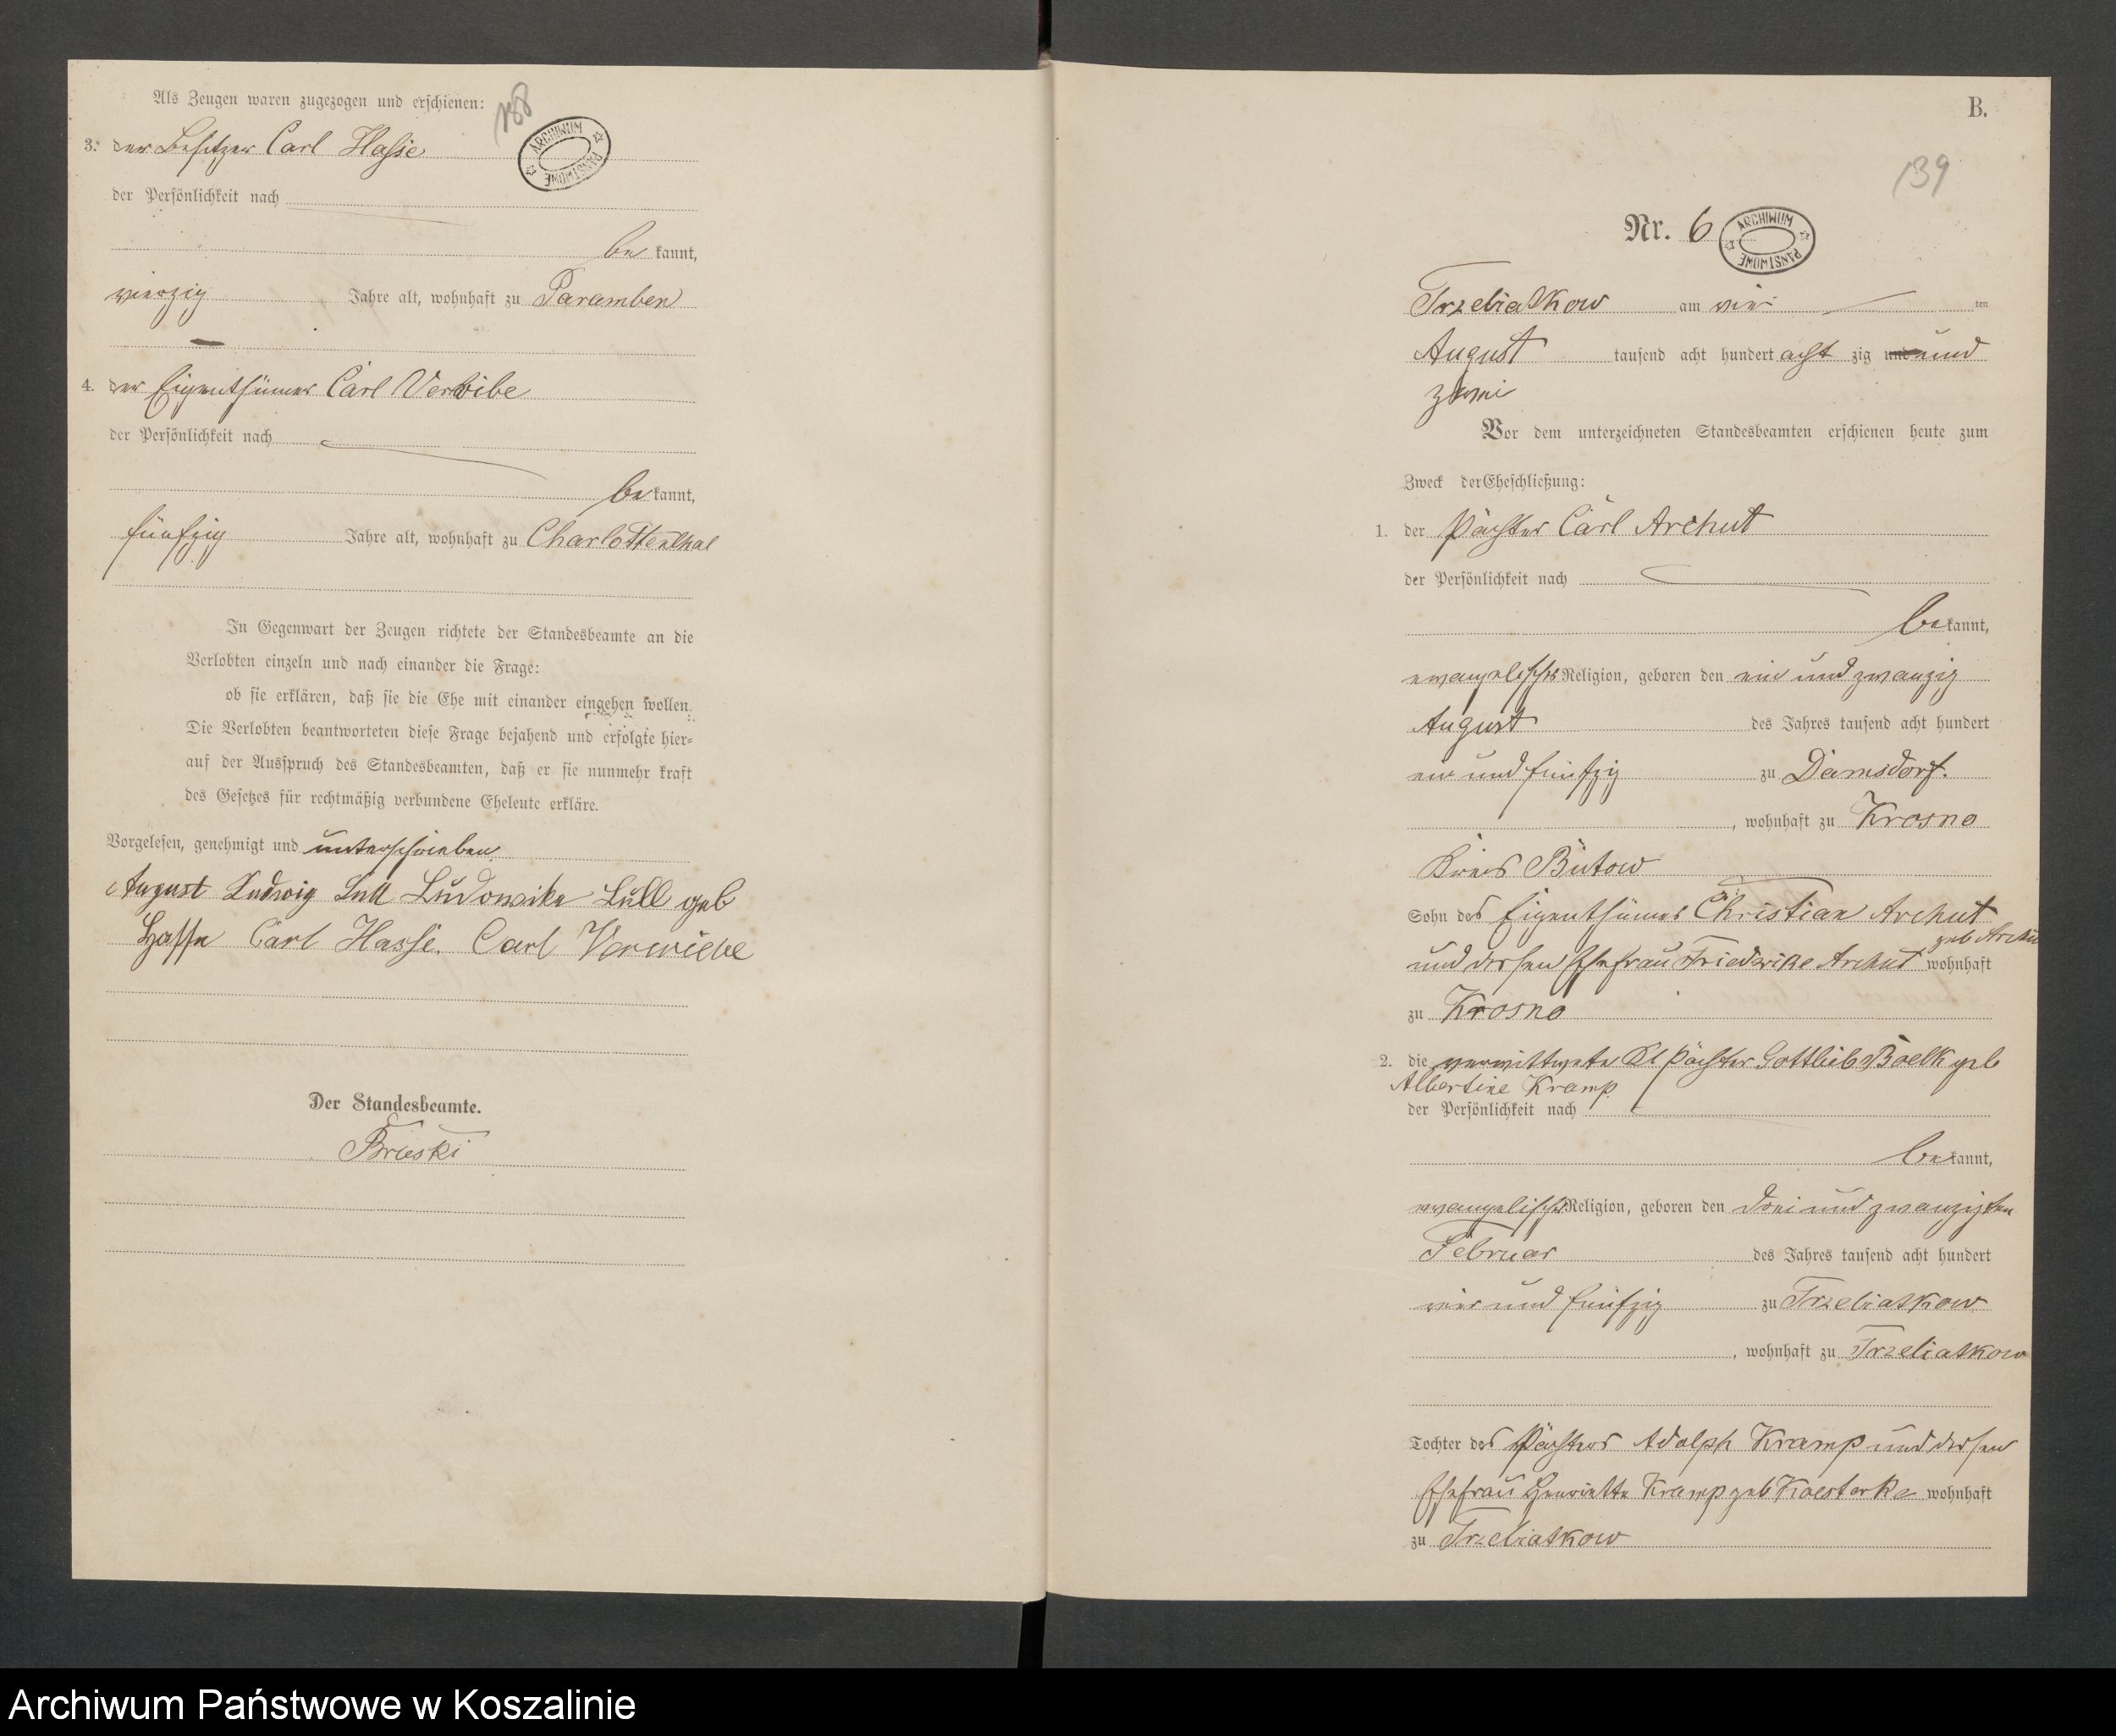 Als Zeugen waren zugezogen und erschienen:
188
ARCHIWUM PAŃSTWOWE
3. der Besitzer Carl Hasse
der Persönlichkeit nach
be kannt,
vierzig Jahre alt, wohnhaft zu Paramben
4. der Eigenthümer Carl Verwibe
der Persönlichkeit nach
be kannt,
fünfzig Jahre alt, wohnhaft zu Charlottenthal
In Gegenwart der Zeugen richtete der Standesbeamte an die
Verlobten einzeln und nach einander die Frage:
ob sie erklären, daß sie die Ehe mit einander eingehen wollen.
Die Verlobten beantworteten diese Frage bejahend und erfolgte hier-
auf der Ausspruch des Standesbeamten, daß er sie nunmehr kraft
des Gesetzes für rechtmäßig verbundene Eheleute erkläre.
Vorgelesen, genehmigt und unterschrieben
August Ludwig Lull Ludowika Lull geb
Hasse Carl Hasse. Carl Verwiebe
Der Standesbeamte.
Brieski
B.
139
Nr. 6
ARCHIWUM PAŃSTWOWE
Trzebiatkow am vier ten
August tausend acht hundert acht zig und und
zwei
Vor dem unterzeichneten Standesbeamten erschienen heute zum
Zweck der Eheschließung:
1. der Pächter Carl Archut
der Persönlichkeit nach
be kannt,
evangelischer Religion, geboren den ein und zwanzig
August des Jahres tausend acht hundert
ein und fünfzig zu Damsdorf.
, wohnhaft zu Krosno
Kreis Bütow
Sohn des Eigenthümer Christian Archut
und dessen Ehefrau Friedrike Archut geb Archut wohnhaft
zu Krosno
2. die verwittwete Kl Pächter Gottlieb Boelk geb
Albertine Kramp.
der Persönlichkeit nach
be kannt,
evangelischer Religion, geboren den drei und zwanzigsten
Februar des Jahres tausend acht hundert
vier und fünfzig zu Trzebiatkow
, wohnhaft zu Trzebiatkow
Tochter des Pächters Adolph Kramp und dessen
Ehefrau Henriette Kramp geb Koesterke wohnhaft
zu Trzebiatkow
Archiwum Państwowe w Koszalinie